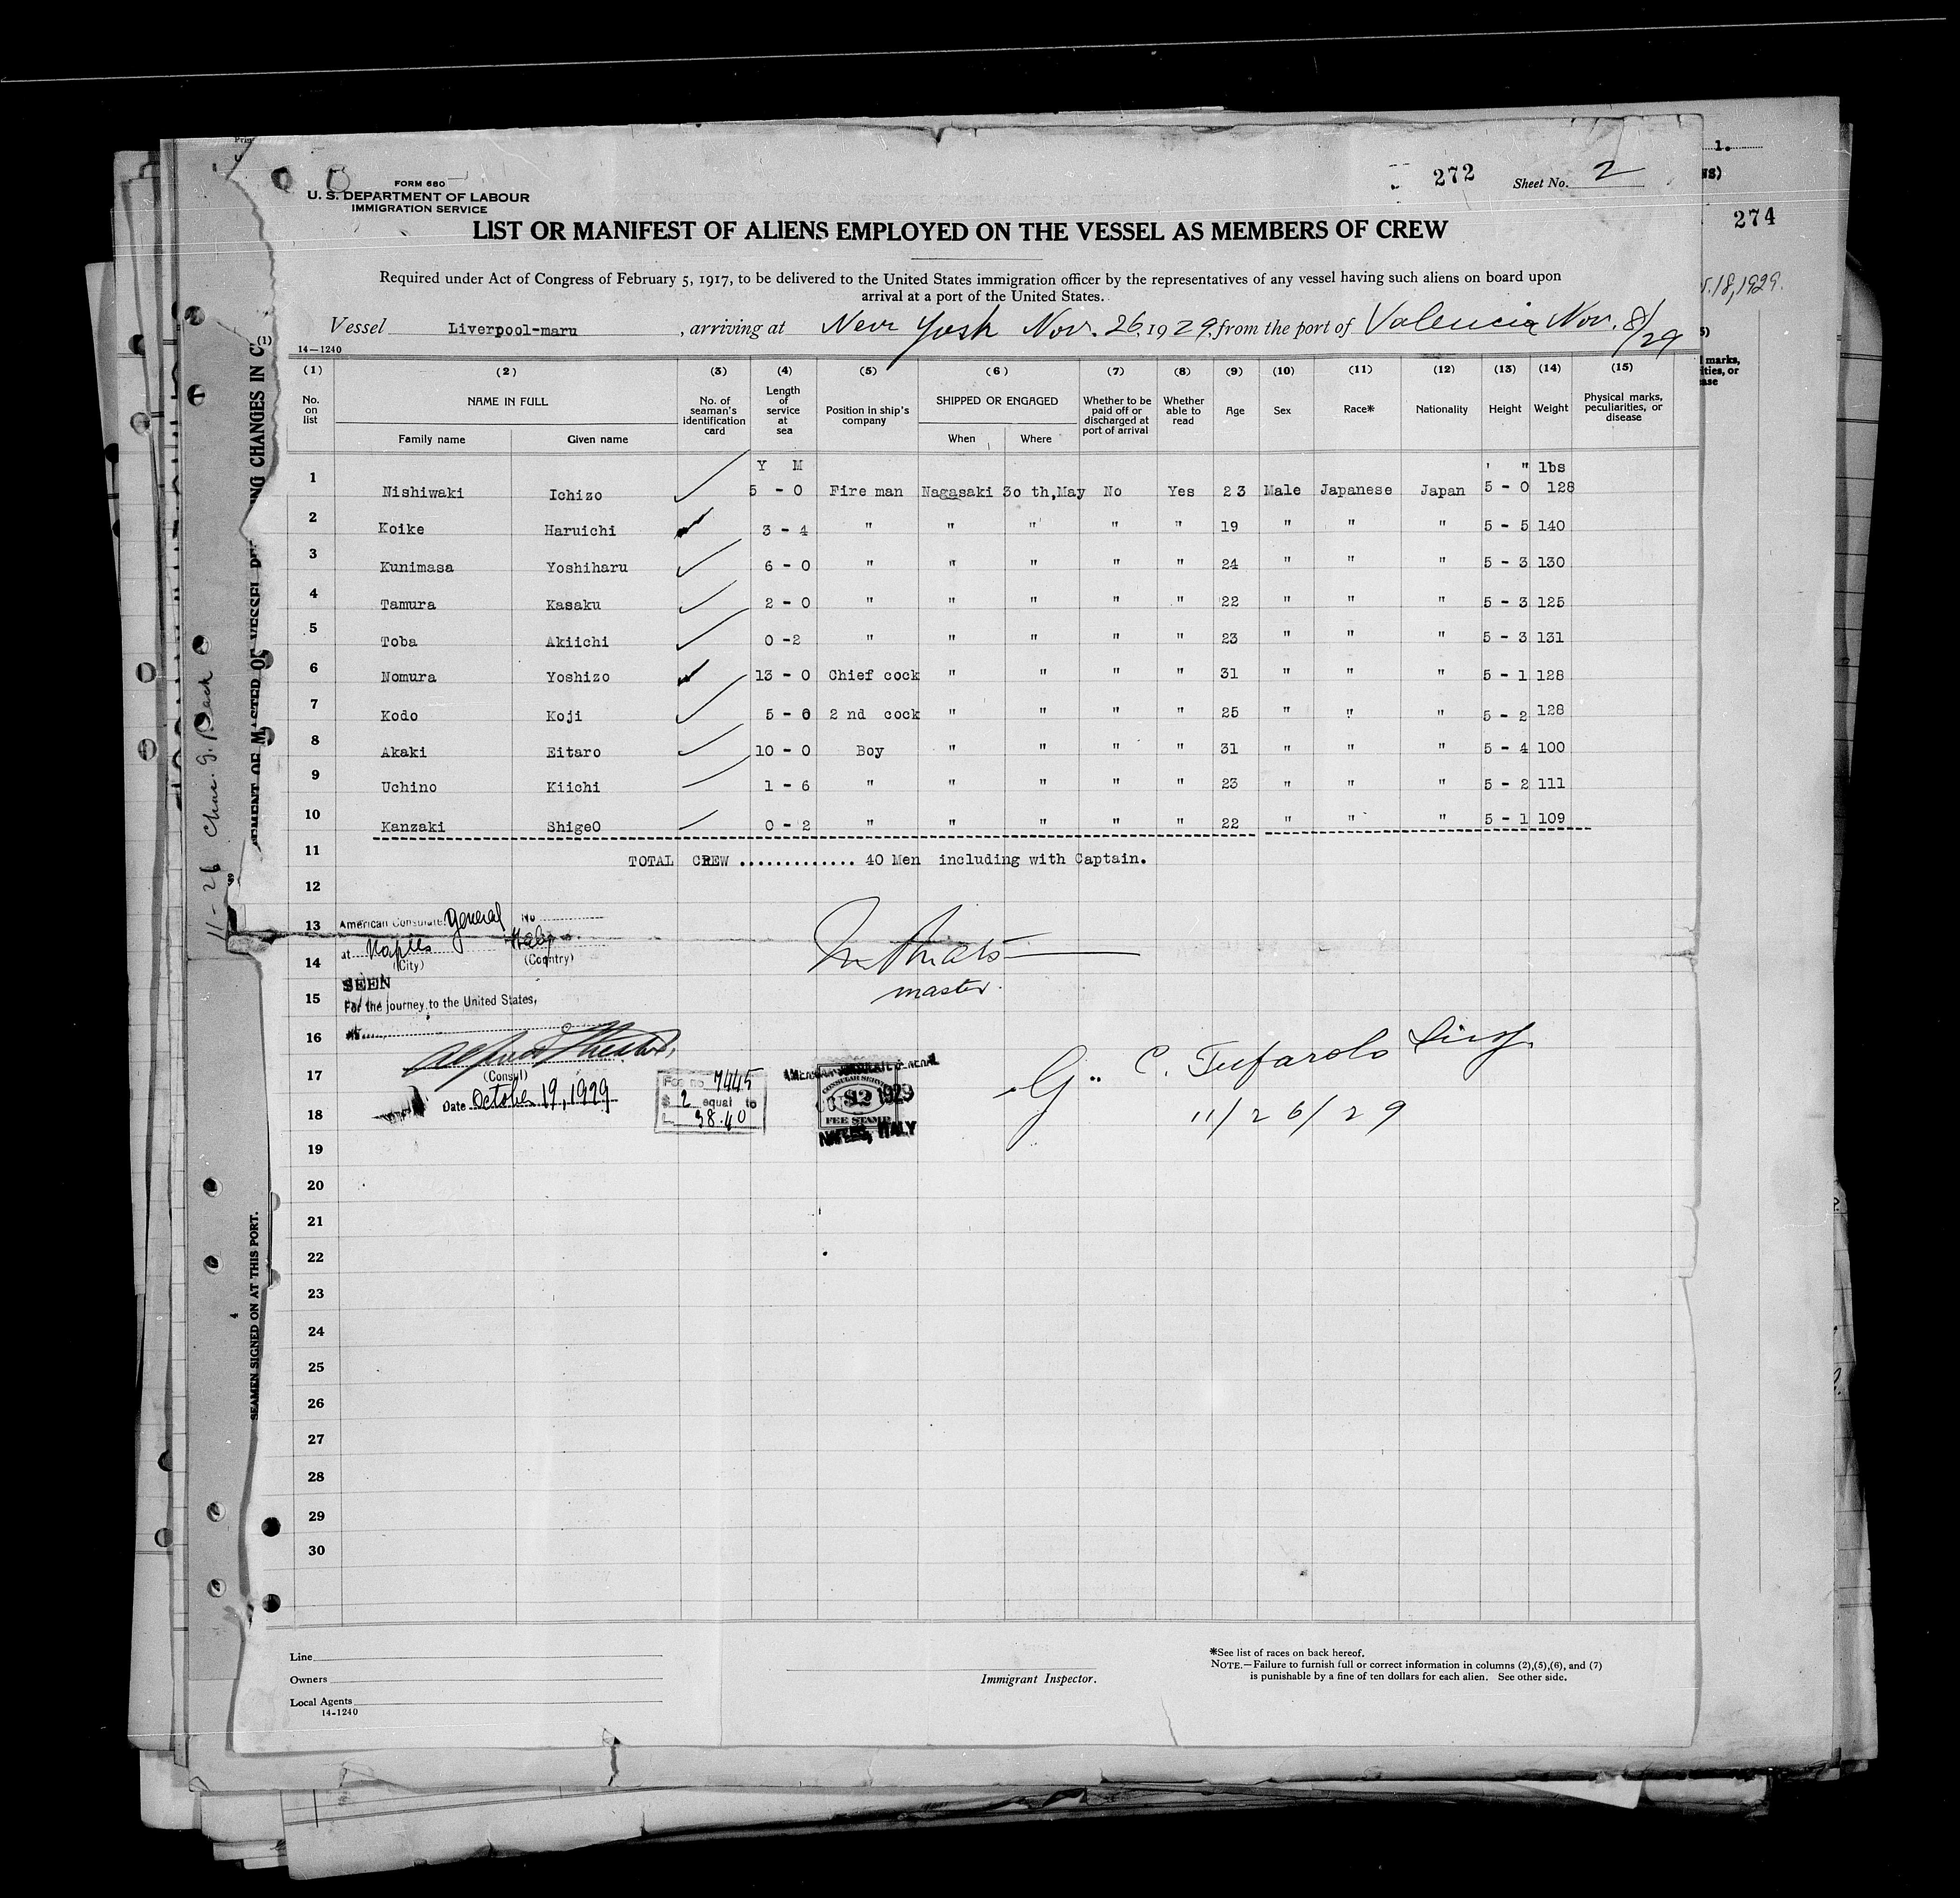 272
Sheet No. 2
FORM 680
U. S. DEPARTMENT OF LABOUR
IMMIGRATION SERVICE
LIST OR MANIFEST OF ALIENS EMPLOYED ON THE VESSEL AS MEMBERS OF CREW
Required under Act of Congress of February 5, 1917, to be delivered to the United States immigration officer by the representatives of any vessel having such aliens on board upon
arrival at a port of the United States.
Vessel Liverpool-maru, arriving at New York Nov. 26, 1929, from the port of Valencia Nov. 8/29
14—1240
(1) (2) (3) (4) (5) (6) (7) (8) (9) (10) (11) (12) (13) (14) (15)
No. on list NAME IN FULL No. of seaman's identification card Length of service at sea Position in ship's company SHIPPED OR ENGAGED Whether to be paid off or discharged at port of arrival Whether able to read Age Sex Race* Nationality Height Weight Physical marks, peculiarities, or disease
Family name Given name When Where
Y M ' " lbs
1 Nishiwaki Ichizo 5 - 0 Fire man Nagasaki 30 th,May No Yes 23 Male Japanese Japan 5 - 0 128
2 Koike Haruichi 3 - 4 " " " " " 19 " " " 5 - 5 140
3 Kunimasa Yoshiharu 6 - 0 " " " " " 24 " " " 5 - 3 130
4 Tamura Kasaku 2 - 0 " " " " " 22 " " " 5 - 3 125
5 Toba Akiichi 0 -2 " " " " " 23 " " " 5 - 3 131
6 Nomura Yoshizo 13 - 0 Chief cock " " " " 31 " " " 5 - 1 128
7 Kodo Koji 5 - 0 2 nd cock " " " " 25 " " " 5 - 2 128
8 Akaki Eitaro 10 - 0 Boy " " " " 31 " " " 5 - 4 100
9 Uchino Kiichi 1 - 6 " " " " " 23 " " " 5 - 2 111
10 Kanzaki ShigeO 0 - 2 " " " " " 22 " " " 5 - 1 109
11 TOTAL CREW ............. 40 Men including with Captain.
12
13 American Consulate General No
at Naples Italy
14 (City) (Country)
SEEN
15 For the journey to the United States,
master.
16
17 (Consul)
G. C. Tufarolo Insp.
18 Date October 19, 1929
11/26/29
Fee no 7445
$ 2 equal to
L. 38.40
AMERICAN CONSULATE GENERAL
CONSULAR SERVICE
$2 1929
FEE STAMP
NAPLES, ITALY
19
20
21
22
23
24
25
26
27
28
29
30
Line
Owners
Local Agents
14-1240
Immigrant Inspector.
*See list of races on back hereof.
NOTE.—Failure to furnish full or correct information in columns (2),(5),(6), and (7)
is punishable by a fine of ten dollars for each alien. See other side.
SEAMEN SIGNED ON AT THIS PORT.
4
1.
274
18, 1929.
marks,